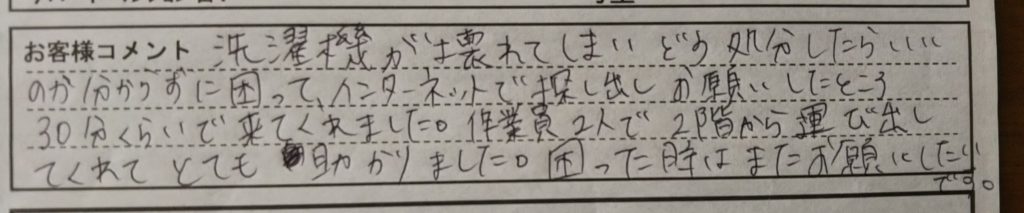 お客様コメント 洗濯機が壊れてしまい どう処分したらいい
のか分からずに困って、インターネットで探し出しお願いしたところ
30分くらいで来てくれました。作業員2人で2階から運び出し
てくれて とても 助かりました。困った時はまたお願いしたい
です。